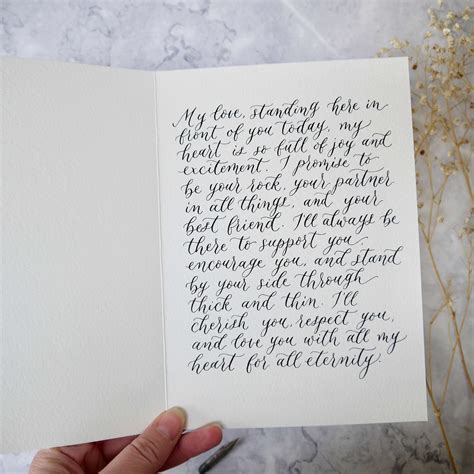 My love, standing here in
front of you today, my
heart is so full of joy and
excitement. I promise to
be your rock, your partner
in all things, and your
best friend. I'll always be
there to support you,
encourage you, and stand
by your side through
thick and thin. I'll
cherish you, respect you,
and love you with all my
heart for all eternity.